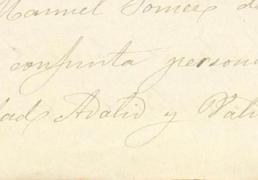 Manuel Gomez de
conjunta person
dad Adalid y Vali